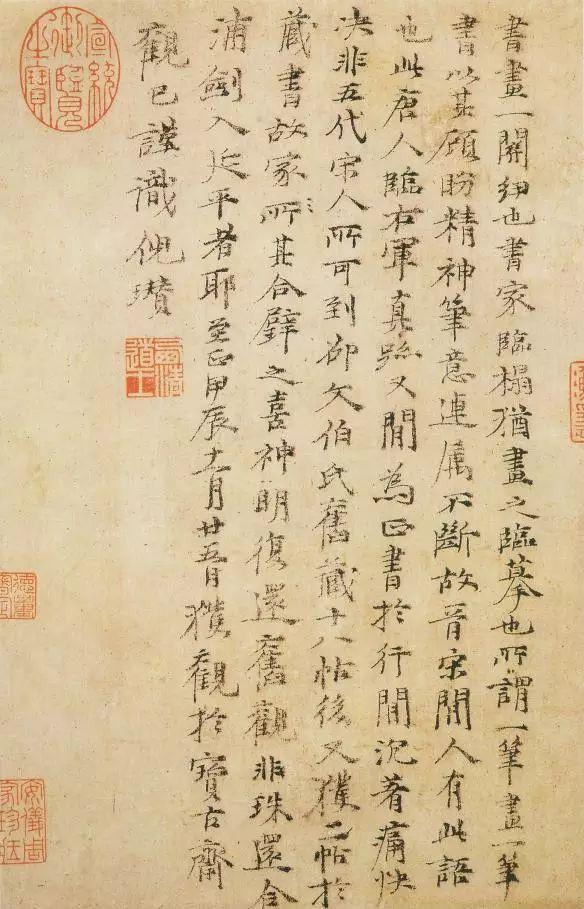 書畫一關紐也書家臨榻猶畫之臨摹也所謂一筆畫一筆
書以其顧盼精神筆意連属不斷故晉宋間人有此語
也此唐人臨右軍真跡又間為正書於行間沉著痛快
决非五代宋人所可到邵文伯氏舊藏十八帖後又獲二帖於
藏書故家所其合璧之喜神明復還舊觀非珠還合
浦劍入延平者耶至正甲辰十一月廿五日獲觀於寶古齋
觀已謹識倪瓚
宣統御覽之寶
安儀周家珍藏